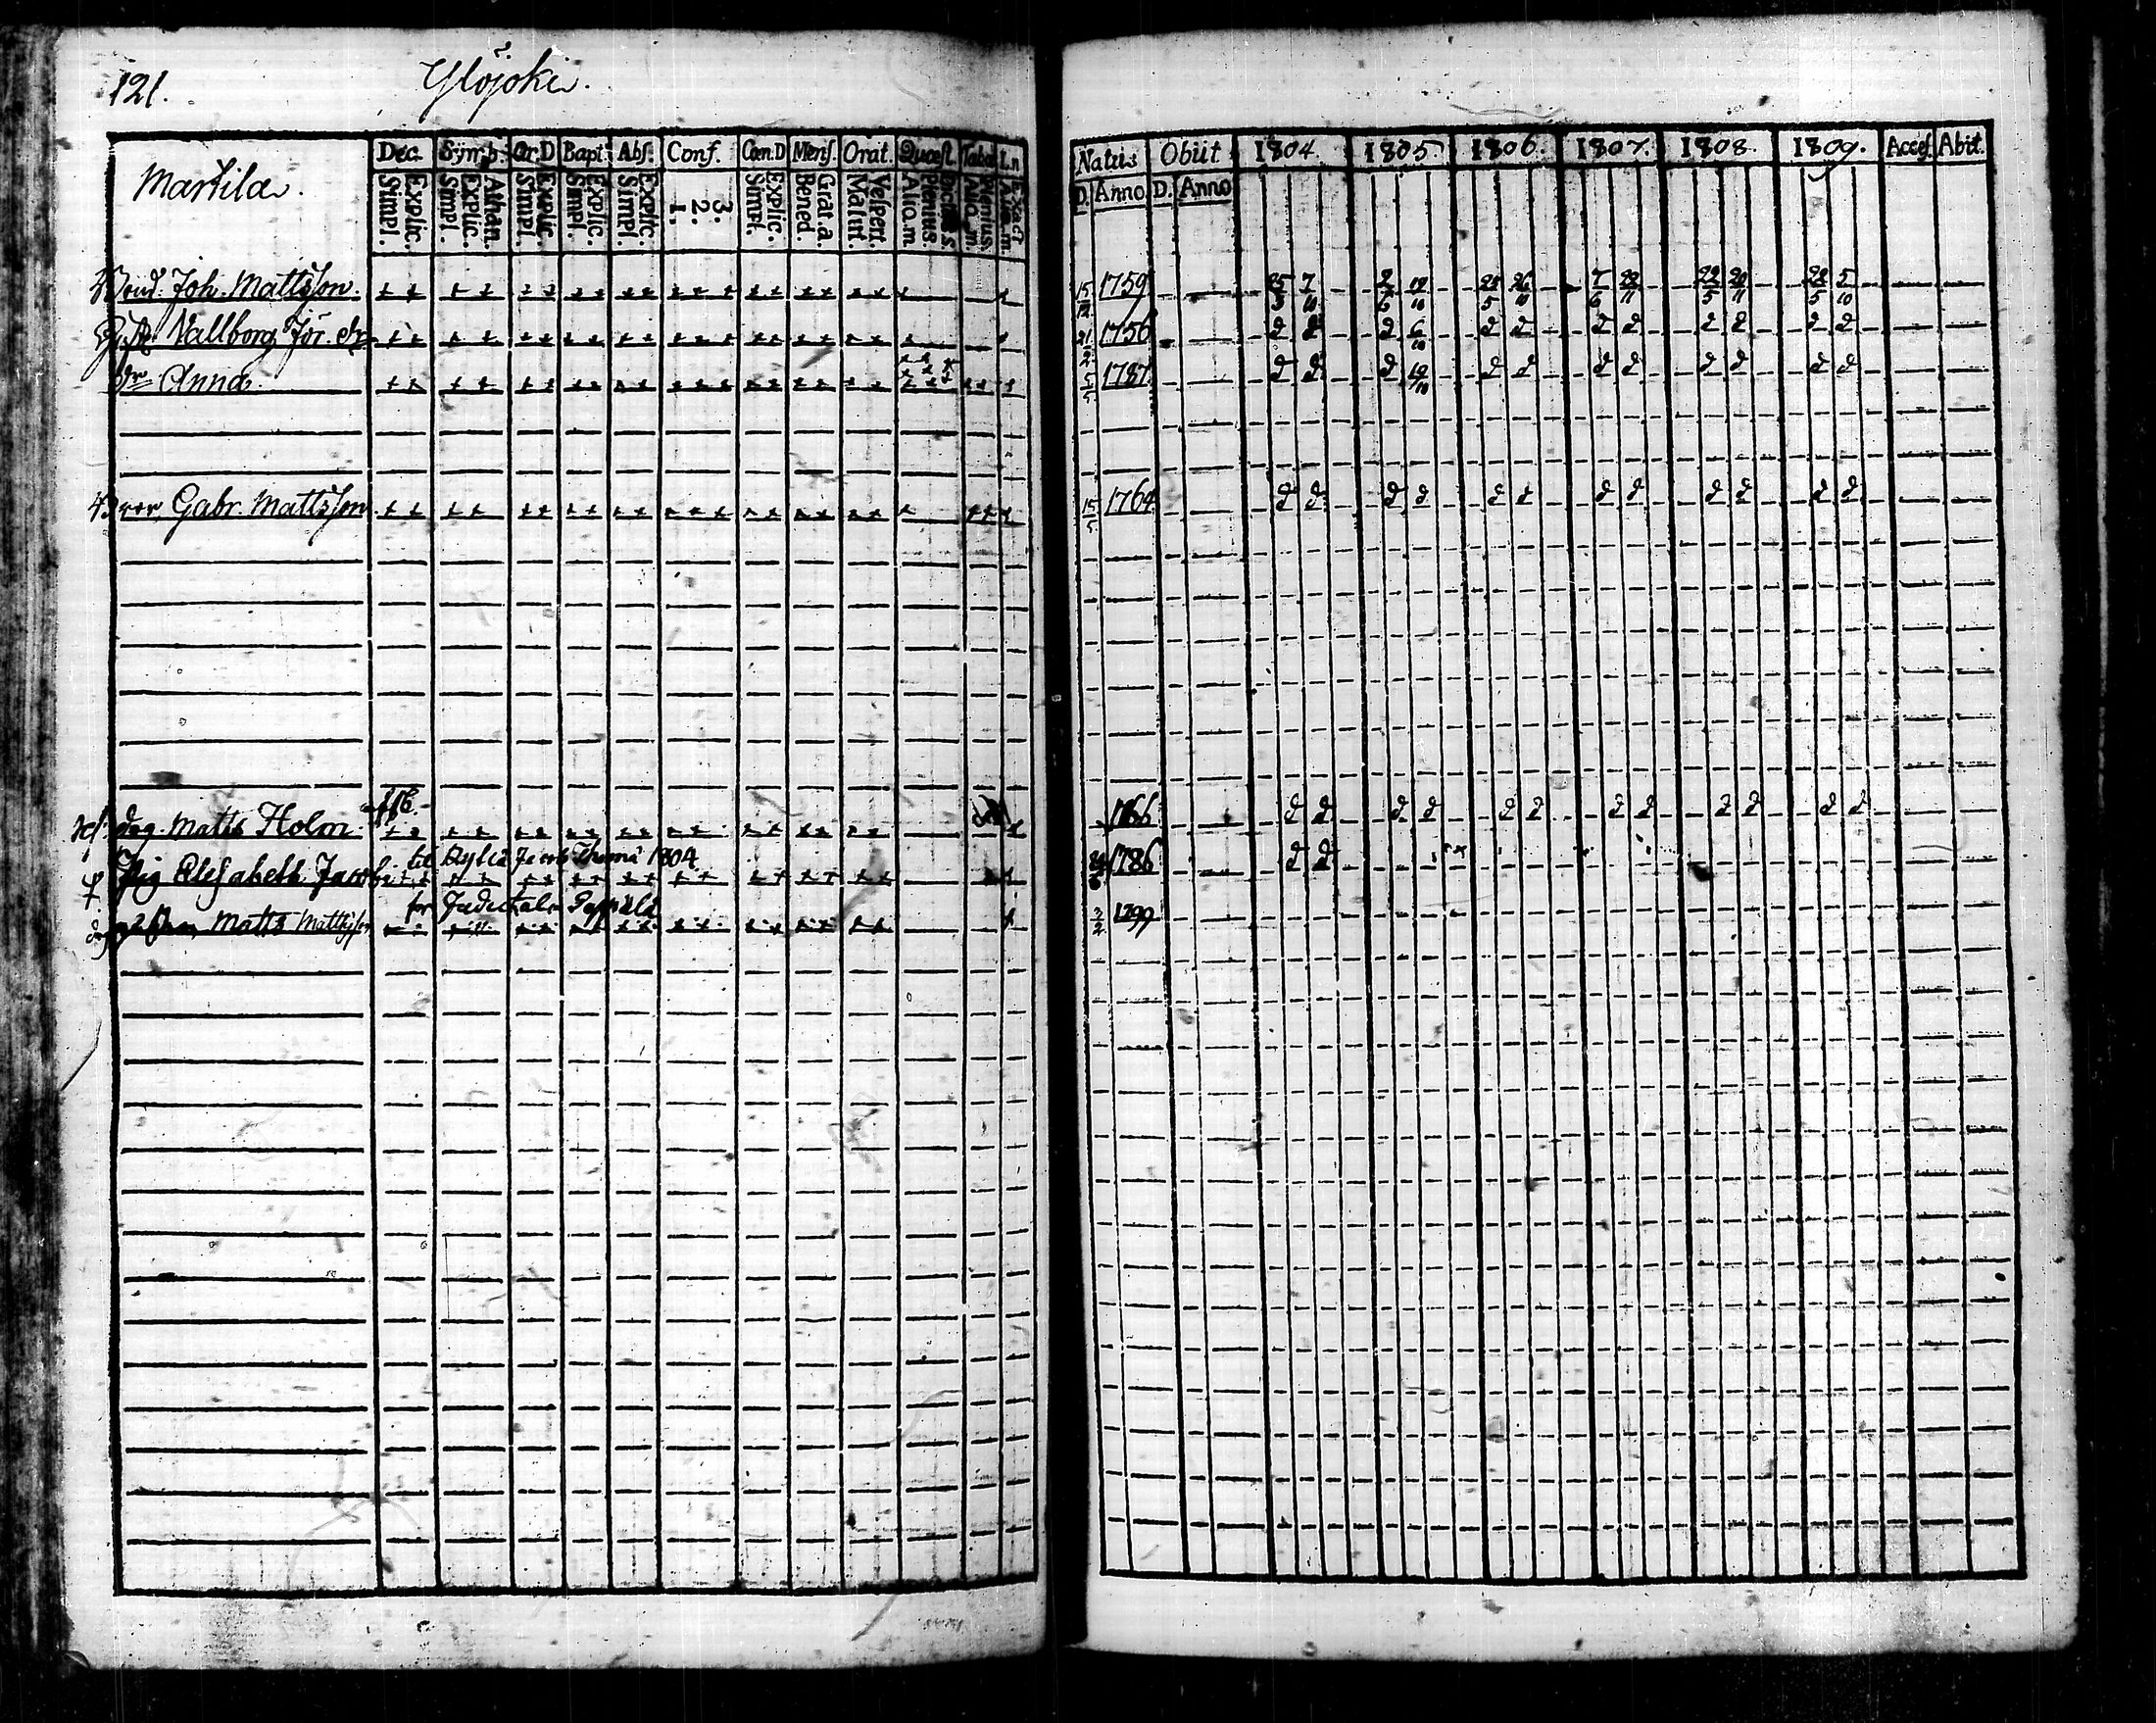 121. Ylöjoki.
Martila.
Dec. Symb. Or.D Bapt. Abs. Conf. Cœn.D Mens. Orat. Quæst. Natus Obiit 1804. 1805. 1806. 1807. 1808. 1809. Acces. Abit.
Simpl. Explic. Simpl. Explic. Athan. Simpl. Explic. Simpl. Explic. Simpl. Explic. 1. 2. 3. Simpl. Explic. Bened. Grat. a. Matut. Vespert. Aliq. m Plenius Aliq. m. Plenius D. Anno D. Anno
Bond. Joh. Mattsson. 15/12 1759 25/5 7/10 2/6 19/10 26/10 7/6 22/11 22/5 20/11 28/5 5/10
Vallborg Jör. dr 21/2 1756 d d d 6/10 d d d d d d d d
dr Anna 5/5 1787 d d d 19/10 d d d d d d d d
Gabr. Mattsson 15/5 1764 d d d d d d d d d d d d
Matts Holm 1766 d d d d d d d d d d d d
til Jacob Thoma 1804
Pig Elisabeth Jacobs 1786 d d
Matts Mattsson 2/2 1799